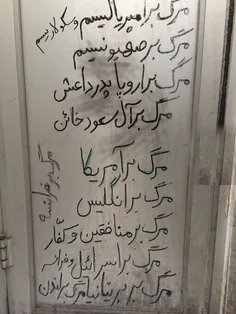 مرگ بر امپریالیسم و سکولاریسم
مرگ بر صهیونیسم
مرگ بر اروپا پدر داعش
مرگ بر آل سعود خائن
مرگ بر آمریکا
مرگ بر انگلیس
مرگ بر منافقین و کفّار
مرگ بر اسرائیل و
مرگ بر بریتانیا مرگ بر
مرگ بر فرانسه